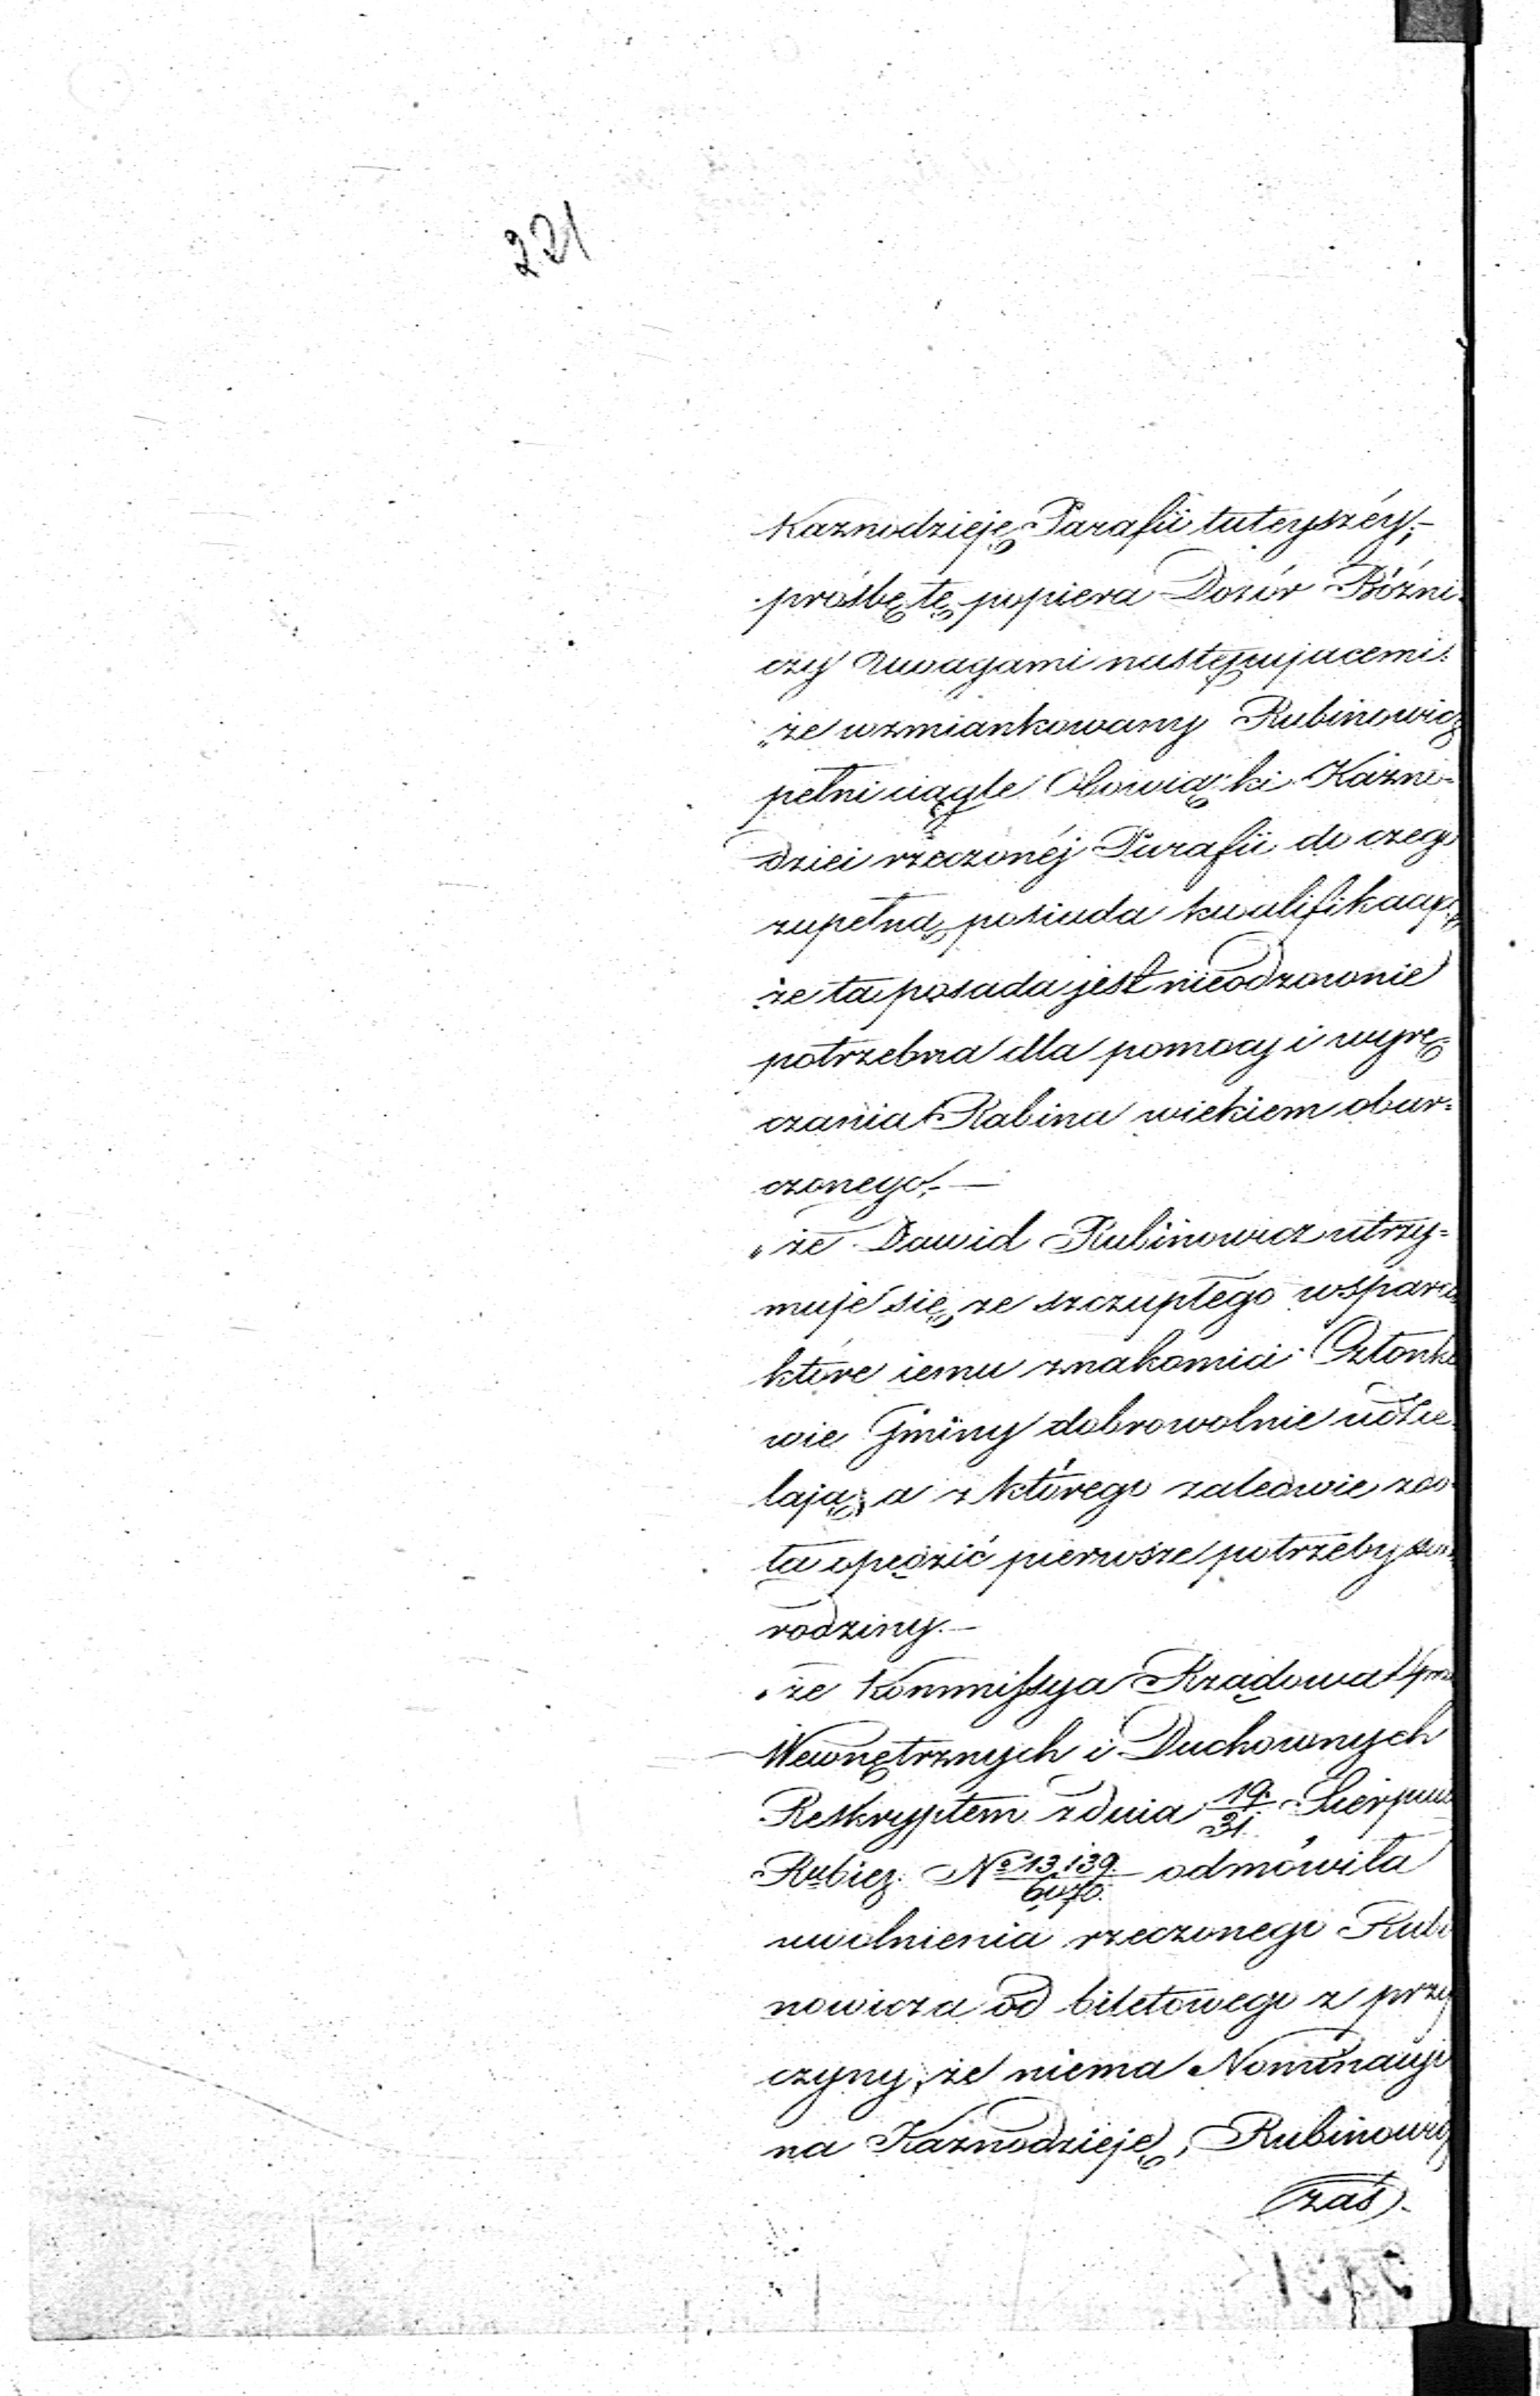 221
Kaznodzieję Parafii tuteyszéy;–
prośbę tę popiera Dozór Bóźni-
czy uwagami następującemi:
„że wzmiankowany Rubinowicz
pełni ciągle Obowiązki Kazno-
dziei rzeczonéj Parafii do czego
zupełną posiada kwalifikacyę,
że ta posada jest nieodzownie
potrzebna dla pomocy i wyrę-
czania Rabina wiekiem obar-
czonego;–
„że Dawid Rubinowicz utrzy-
muje się ze szczupłego wsparcia
które iemu znakomici Członko
wie Gminy dobrowolnie udzie-
lają; a z którego zaledwie zdo-
ła opędzić pierwsze potrzeby swej
rodziny.–
„że Kommissya Rządowa Spraw
Wewnętrznych i Duchownych
Reskryptem z dnia 19/31 Sierpnia
R. bież. № 13,139/ odmówiła
uwolnienia rzeczonego Rubi
nowicza od biletowego z przy
czyny, że niema Nominacyi
na Kaznodzieję, Rubinowicz
zaś